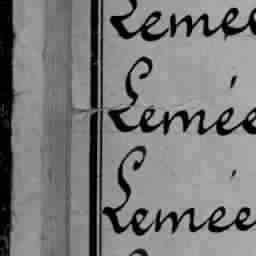 Lemée
Lemée
Lemée